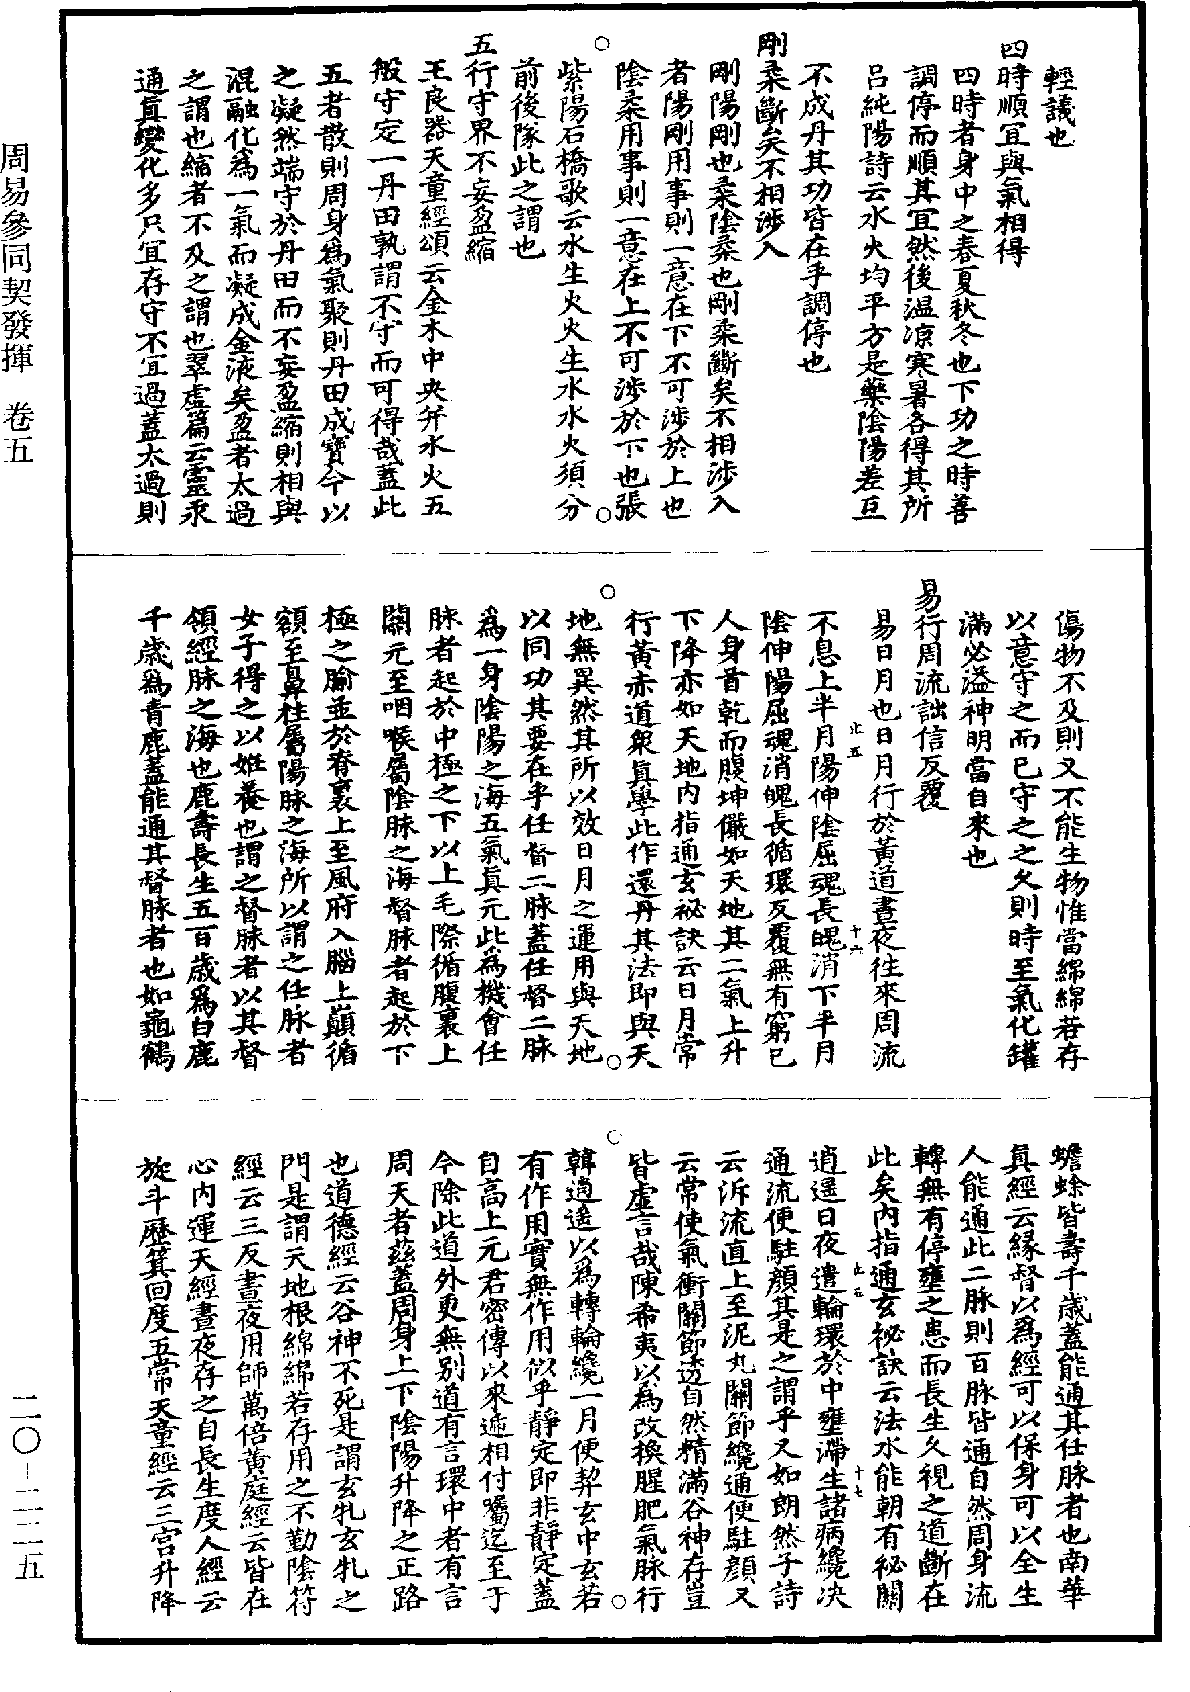 輕議也
四時順宜與氣相得
四時者身中之春夏秋冬也下功之時善
調停而順其宜然後温凉寒暑各得其所
吕純陽詩云水火均平方是藥陰陽差互
不成丹其功皆在乎調停也
剛柔斷矣不相涉入
剛陽剛也柔陰柔也剛柔斷矣不相涉入
者陽剛用事則一意在下不可涉於上也
陰柔用事則一意在上不可涉於下也張
紫陽石橋歌云水生火火生水水火須分
前後隊此之謂也
五行守界不妄盈縮
王良器天童經頌云金木中央并水火五
般守定一丹田孰謂不守而可得哉蓋此
五者散則周身爲氣聚則丹田成寳今以
之凝然端守於丹田而不妄盈縮則相與
混融化為一氣而凝成金液矣盈者太過
之謂也縮者不及之謂也翠虚篇云靈汞
通真變化多只宜存守不宜過蓋太過則
傷物不及則又不能生物惟當綿綿若存
以意守之而已守之之久則時至氣化罐
滿必溢神明當自來也
易行周流詘信反覆
易日月也日月行於黃道晝夜往來周流
不息上半月陽伸陰屈魂長魄消下半月
陰伸陽屈魂消魄長循環反覆無有窮已
人身首乾而腹坤儼如天地其二氣上升
下降亦如天地内指通玄祕訣云日月常
行黃赤道衆真學此作還丹其法即與天
地無異然其所以效日月之運用與天地
以同功其要在乎任督二脉蓋任督二脉
為一身陰陽之海五氣真元此為機會任
脉者起於中極之下以上毛際循腹裏上
關元至咽喉屬陰脉之海督脉者起於下
極之腧並於脊裏上至風府入腦上巔循
額至鼻柱屬陽脉之海所以謂之任脉者
女子得之以姙養也謂之督脉者以其督
領經脉之海也鹿壽長生五百歲爲白鹿
千歲爲青鹿蓋能通其督脉者也如龜鶴
蟾蜍皆壽千歲蓋能通其任脉者也南華
真經云緣督以為經可以保身可以全生
人能通此二脉則百脉皆通自然周身流
轉無有停壅之患而長生久視之道斷在
此矣内指通玄祕訣云法水能朝有祕關
逍遥日夜遣輪環於中壅滯生諸病纔決
通流便駐顏其是之謂乎又如朗然子詩
云泝流直上至泥丸關節纔通便駐顏又
云常使氣衝關節透自然精滿谷神存豈
皆虛言哉陳希夷以為改換腥肥氣脉行
韓逍遥以為轉輪纔一月便契玄中玄若
有作用實無作用似乎靜定即非靜定蓋
自高上元君密傳以來遞相付囑迄至于
今除此道外更無别道有言環中者有言
周天者兹蓋周身上下陰陽升降之正路
也道德經云谷神不死是謂玄牝玄牝之
門是謂天地根綿綿若存用之不勤陰符
經云三反晝夜用師萬倍黃庭經云皆在
心内運天經晝夜存之自長生度人經云
旋斗歷箕回度五常天童經云三宫升降
止五
十六
止五
十七
周易參同契發揮 卷五
二〇-二二五